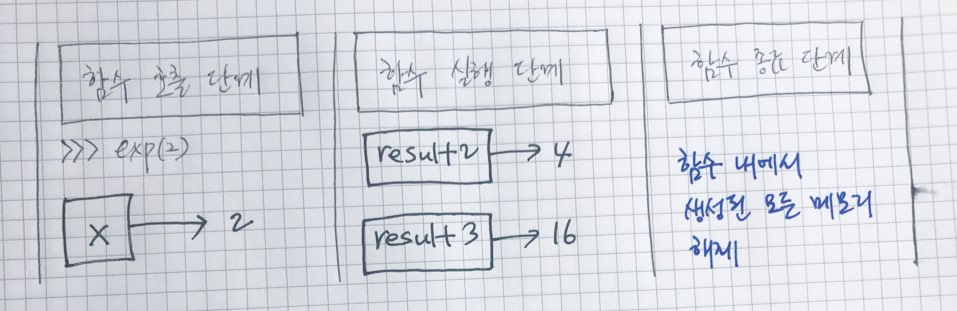 함수 호출 단계
>>> exp(2)
x → 2
함수 실행 단계
result2 → 4
result3 → 16
함수 종료 단계
함수 내에서
생성된 모든 메모리
해제